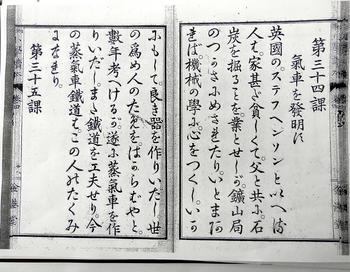 第三十四課
氣車を發明に
英國のステフヘンソンといへ
人も。家甚だ貧しくて。父と共に。石
炭を掘ることを。業とせしが。鑛山局
のつかさにめされたり。いとまだ
きば。機械の學に。心をつくし。いか
にもして良き器を作りいだし。世
の爲め人のたをばからむやと。
數年考へけるが。遂に蒸氣車を作
りいだし。また鐵道を工夫せり。今
の蒸氣車鐵道も。この人のたくみ
第三十五課